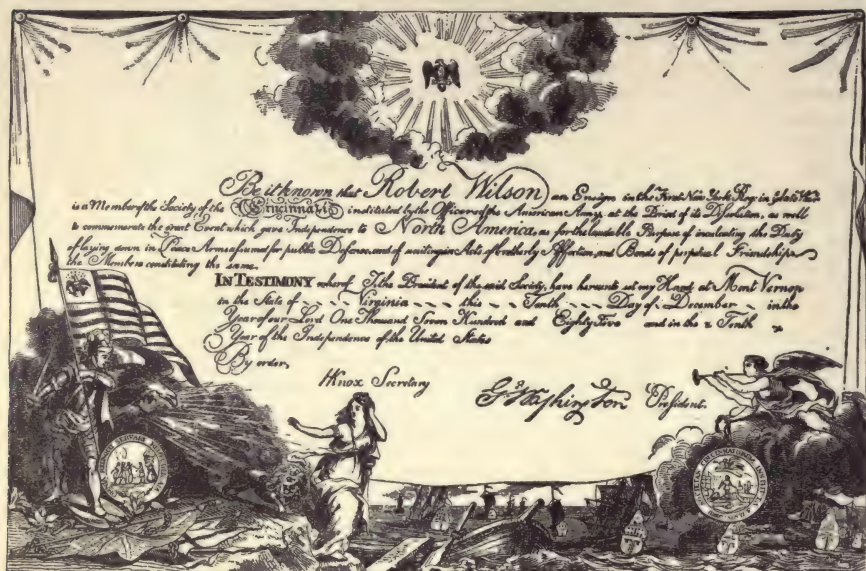 Be it known that Robert Wilson an Ensign in the First New York Reg: in late War
is a Member of the Society of the Cincinnati instituted by the Officers of the American Army, at the Period of its Dissolution, as well
to commemorate the great Event which gave Independence to North America, as for the laudable Purpose of inculcating the Duty
of laying down in Peace Arms assumed for public Defence, and of uniting in Acts of brotherly Affection, and Bonds of perpetual Friendship
the Members constituting the same.
IN TESTIMONY whereof I, the President of the said Society, have hereunto set my Hand at Mont Vernon
in the State of Virginia this Tenth Day of December in the
Year of our Lord One Thousand Seven Hundred and Eighty Five and in the Tenth
Year of the Independence of the United States
By order,
HKnox Secretary
G Washington President.